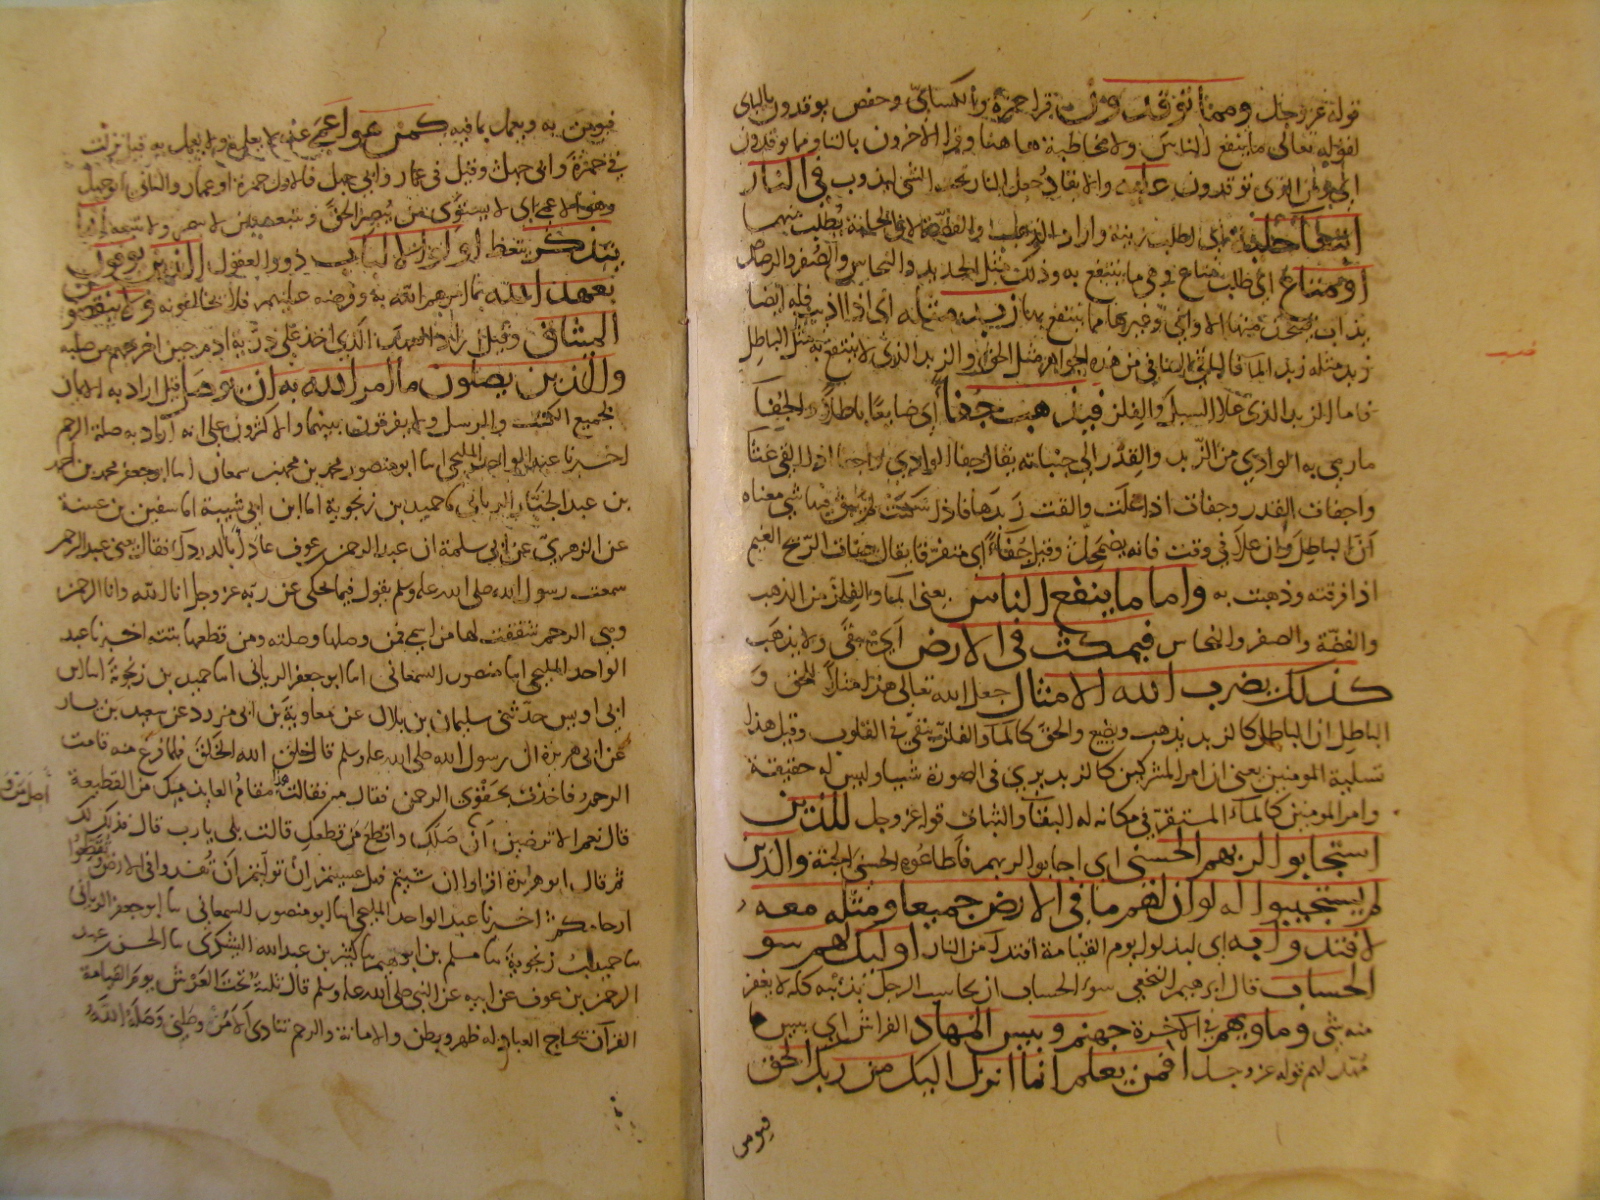 قوله عز وجل ومما توقدون قرا حمزة والكسائي وحفص يوقدون بالياء
لقوله تعالى ما ينفع الناس ولا مخاطبة هاهنا وقرا الاخرون بالتا ومما توقدون
اي ومن الذي توقدون عليه والايقاد جعل النار تحت الشي ليذوب في النار
ابتغا حلية اي لطلب زينة واراد الذهب والفضة لان الحلية تطلب منهما
او متاع اي طلب متاع وهي ما ينتفع به وذلك مثل الحديد والنحاس والصفر والرصاص
يذاب فيتخذ منها الاواني وغيرها مما ينتفع بها زبد مثله اي اذا اذيب فله ايضا
زبد مثله زبد الما فالباقي الصافي من هذه الجواهر مثل الحق والزبد الذي لا ينتفع به مثل الباطل
فاما الزبد الذي علا السيل والفلز فيذهب جفاً اي ضايعا باطلا والجفا
ما رمي به الوادي من الزبد والقدر الى جنباته يقال جفا الوادي واجفا اذا القى غثاه
واجفات القدر وجفات اذا غلت والقت زبدها فاذا سكنت لم يبق فيها شي معناه
ان الباطل وان علا في وقت فانه يضمحل وقيل جفاءً اي متفرقا يقال جفات الريح الغيم
اذا فرقته وذهبت به واما ما ينفع الناس يعني الما والفلز من الذهب
والفضة والصفر والنحاس فيمكث في الارض اي يبقى ولا يذهب
كذلك يضرب الله الامثال جعل الله تعالى هذا مثلا للحق و
الباطل ان الباطل كالزبد يذهب ويضيع والحق كالما والفلز يبقى في القلوب وقيل هذا
تسلية المومنين يعني ان امر المشركين كالزبد يرى في الصورة شيا وليس له حقيقة
وامر المومنين كالماء المستقر في مكانه له البقا والثبات قوله عز وجل للذين
استجابوا لربهم الحسنى اي اجابوا لربهم فاطاعوه الحسنى الجنة والذين
لم يستجيبوا له لو ان لهم ما في الارض جميعا ومثله معه
لافتدوا به اي لبذلوا يوم القيامة افتدا من النار اوليك لهم سو
الحساب قال ابرهيم النخعي سوء الحساب ان يحاسب الرجل بذنبه كله لا يغفر
منه شي وماويهم في الاخرة جهنم وبيس المهاد الفراش اي بيس ما
مهد لهم قوله عز وجل افمن يعلم انما انزل اليك من ربك الحق
فيومن
فيومن به ويعمل بما فيه كمن هو اعمى عنه لا يعلمه ولا يعمل به قيل نزلت
في حمزة وابي جهل وقيل في عمار وابي جهل فالاول حمزة او عمار والثاني ابو جهل
وهو الاعمى اي لا يستوي من يبصر الحق ويتبعه ومن لا يبصره ولا يتبعه انما
يتذكر يتعظ اولوا الالباب ذوو العقول الذين يوفون
بعهد الله بما امرهم الله به وفرضه عليهم فلا يخالفونه ولا ينقضون
الميثاق وقيل اراد العهد الذي اخذ على ذرية ادم حين اخرجهم من صلبه
والذين يصلون ما امر الله به ان يوصل قيل اراد به الايمان
بجميع الكتب والرسل ولا يفرقون بينهما والاكثرون على انه اراد به صلة الرحم
اخبرنا عبد الواحد المليحي اسا ابو منصور محمد بن محمد بن سمعان اسا ابو جعفر محمد بن احمد
بن عبد الجبار الرياني ما حميد بن زنجوية اما ابن ابي شيبة اما سفين بن عيينة
عن الزهري عن ابي سلمة ان عبد الرحمن بن عوف عاد ابا الدرداء فقال يعني عبد الرحمن
سمعت رسول الله صلى الله عليه وسلم يقول فيما يحكى عن ربه عز وجل انا الله وانا الرحمن
وهي الرحم شققت لها من اسمي فمن وصلها وصلته ومن قطعها بتته اخبرنا عبد
الواحد المليحي اسا منصور السمعاني اسا ابو جعفر الرياني اسا حميد بن زنجوية اسا ابن
ابي اويس حدثني سليمان بن بلال عن معاوية بن ابي مزرد عن سعيد بن يسار
عن ابي هريرة ان رسول الله صلى الله عليه وسلم قال خلق الله الخلق فلما فرغ منه قامت
الرحم فاخذت بحقوي الرحمن فقال مه فقالت هذا مقام العايذ بك من القطيعة
قال نعم الا ترضين ان اصل من وصلك واقطع من قطعك قالت بلى يا رب قال فذلك لك
ثم قال ابو هريرة اقراوا ان شيتم فهل عسيتم ان توليتم ان تفسدوا في الارض وتقطعوا
ارحامكم اخبرنا عبد الواحد المليحي اسا ابو منصور السمعاني سا ابو جعفر الرياني
سا حميد بن زنجوية سا مسلم بن ابرهيم سا كثير بن عبد الله اليشكري سا الحسن بن عبد
الرحمن بن عوف عن ابيه عن النبي صلى الله عليه وسلم قال ثلثة تحت العرش يوم القيامة
القران يحاج العباد له ظهر وبطن والامانة والرحم تنادي الا من وصلني وصله الله
اصل من و